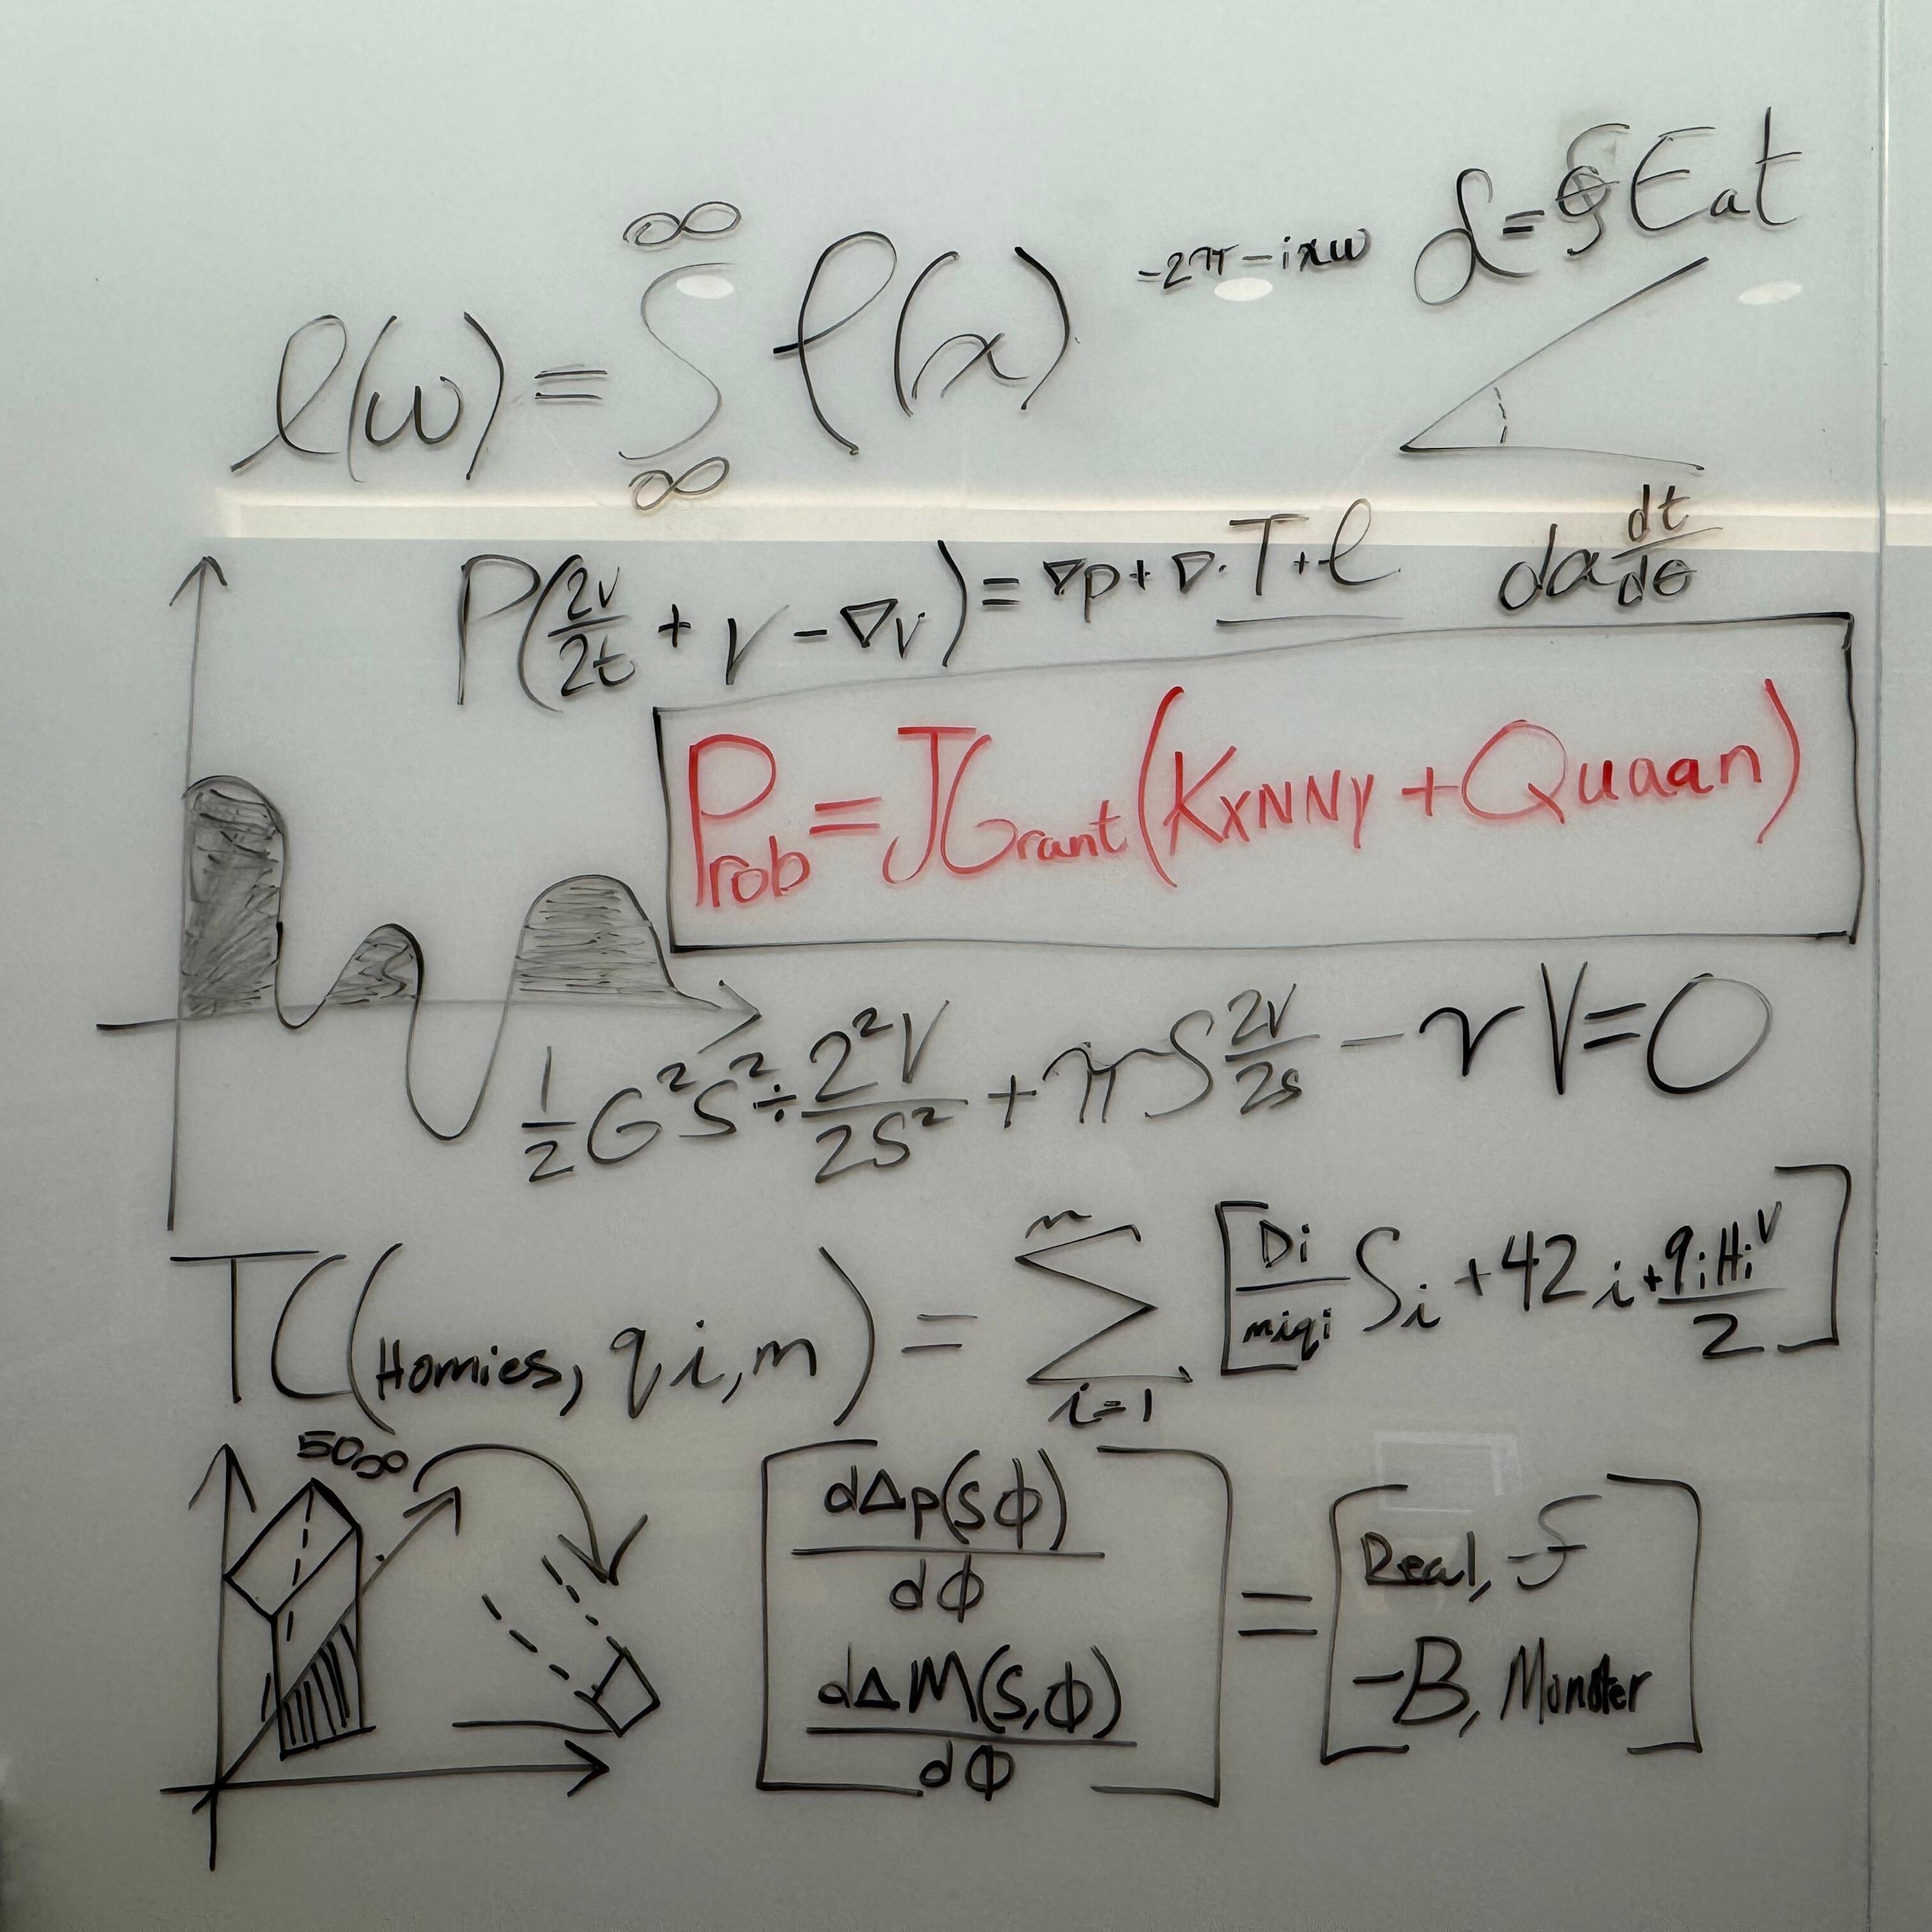 d = ∮ Eat
l(w) = ∫ ∞ ∞ f(x) -2π-ixw
dα dt/dθ
P(2v/2t + v - ∇v) = ∇p + ∇. T + l
Prob = JGrant (KxNNy + Quaan)
1/2 G²S² ÷ 2²V/2S² + πS 2V/2s - rV = 0
TC(Homies, qi, m) = Σ n i=1 [Di/miqi Si + 42i + qiHiV/2]
50∞
[dΔp(sϕ)/dϕ dΔM(s,ϕ)/dϕ] = [Real, -f -B, Monster]